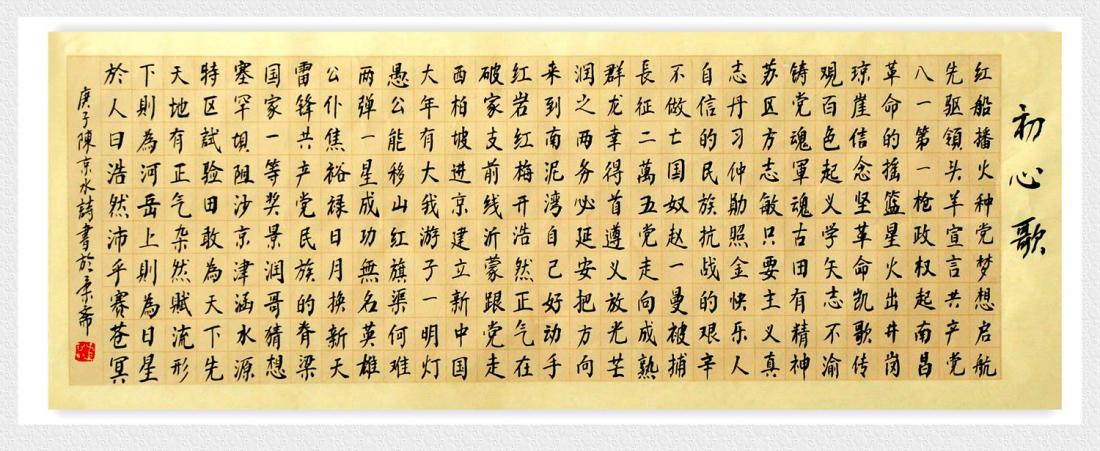 初心歌
红船播火种党梦想启航
先驱領头羊宣言共产党
八一第一枪政权起南昌
革命的摇篮星火出井岗
琼崖信念坚革命凯歌传
观百色起义学矢志不渝
铸党魂軍魂古田有精神
苏区方志敏只要主义真
志丹习仲勋照金快乐人
自信的民族抗战的艰辛
不做亡国奴赵一曼被捕
長征二萬五党走向成熟
群龙幸得首遵义放光芒
润之两务必延安把方向
来到南泥湾自己好动手
红岩红梅开浩然正气在
破家支前线沂蒙跟党走
西柏坡进京建立新中国
大年有大我游子一明灯
愚公能移山红旗渠何难
两弹一星成功無名英雄
公仆焦裕禄日月换新天
雷锋共产党民族的脊梁
国家一等奖景润哥猜想
塞罕坝阻沙京津涵水源
特区試验田敢為天下先
天地有正气杂然赋流形
下則為河岳上則為日星
於人曰浩然沛乎赛苍冥
庚子陳京水詩書於